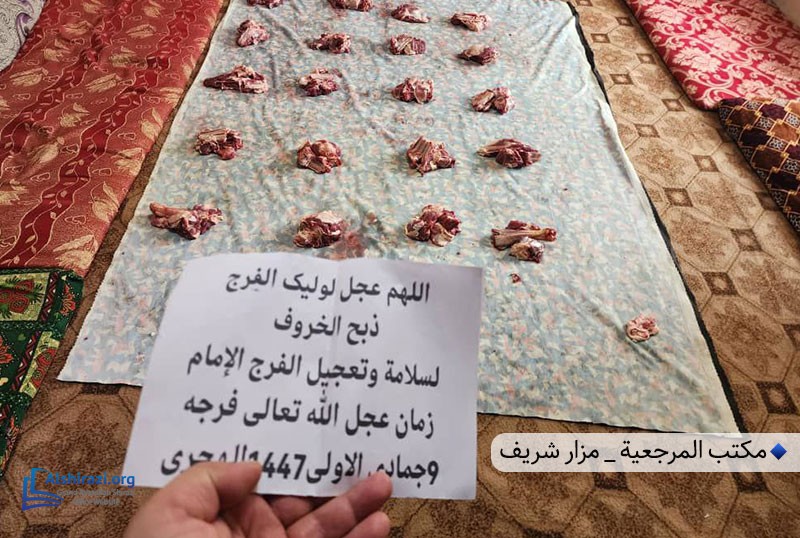 اللهم عجل لوليك الفرج
ذبح الخروف
لسلامة وتعجيل الفرج الإمام
زمان عجل الله تعالى فرجه
9جمادى الاولى1447الهجرى
مكتب المرجعية _ مزار شريف
Alshirazi.org